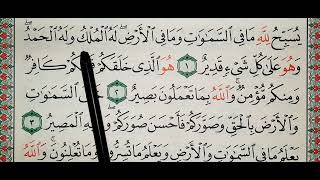 يُسَبِّحُ لِلَّهِ مَا فِي السَّمَٰوَٰتِ وَمَا فِي الْأَرْضِ ۖ لَهُ الْمُلْكُ وَلَهُ الْحَمْدُ ۖ
وَهُوَ عَلَىٰ كُلِّ شَيْءٍ قَدِيرٌ ١ هُوَ الَّذِي خَلَقَكُمْ فَمِنكُمْ كَافِرٌ
وَمِنكُم مُّؤْمِنٌ ۚ وَاللَّهُ بِمَا تَعْمَلُونَ بَصِيرٌ ٢ السَّمَٰوَٰتِ
وَالْأَرْضَ بِالْحَقِّ وَصَوَّرَكُمْ فَأَحْسَنَ صُوَرَكُمْ ۖ الْمَصِيرُ ٣
يَعْلَمُ مَا فِي السَّمَٰوَٰتِ وَالْأَرْضِ وَيَعْلَمُ مَا تُسِرُّونَ وَمَا تُعْلِنُونَ ۚ وَاللَّهُ